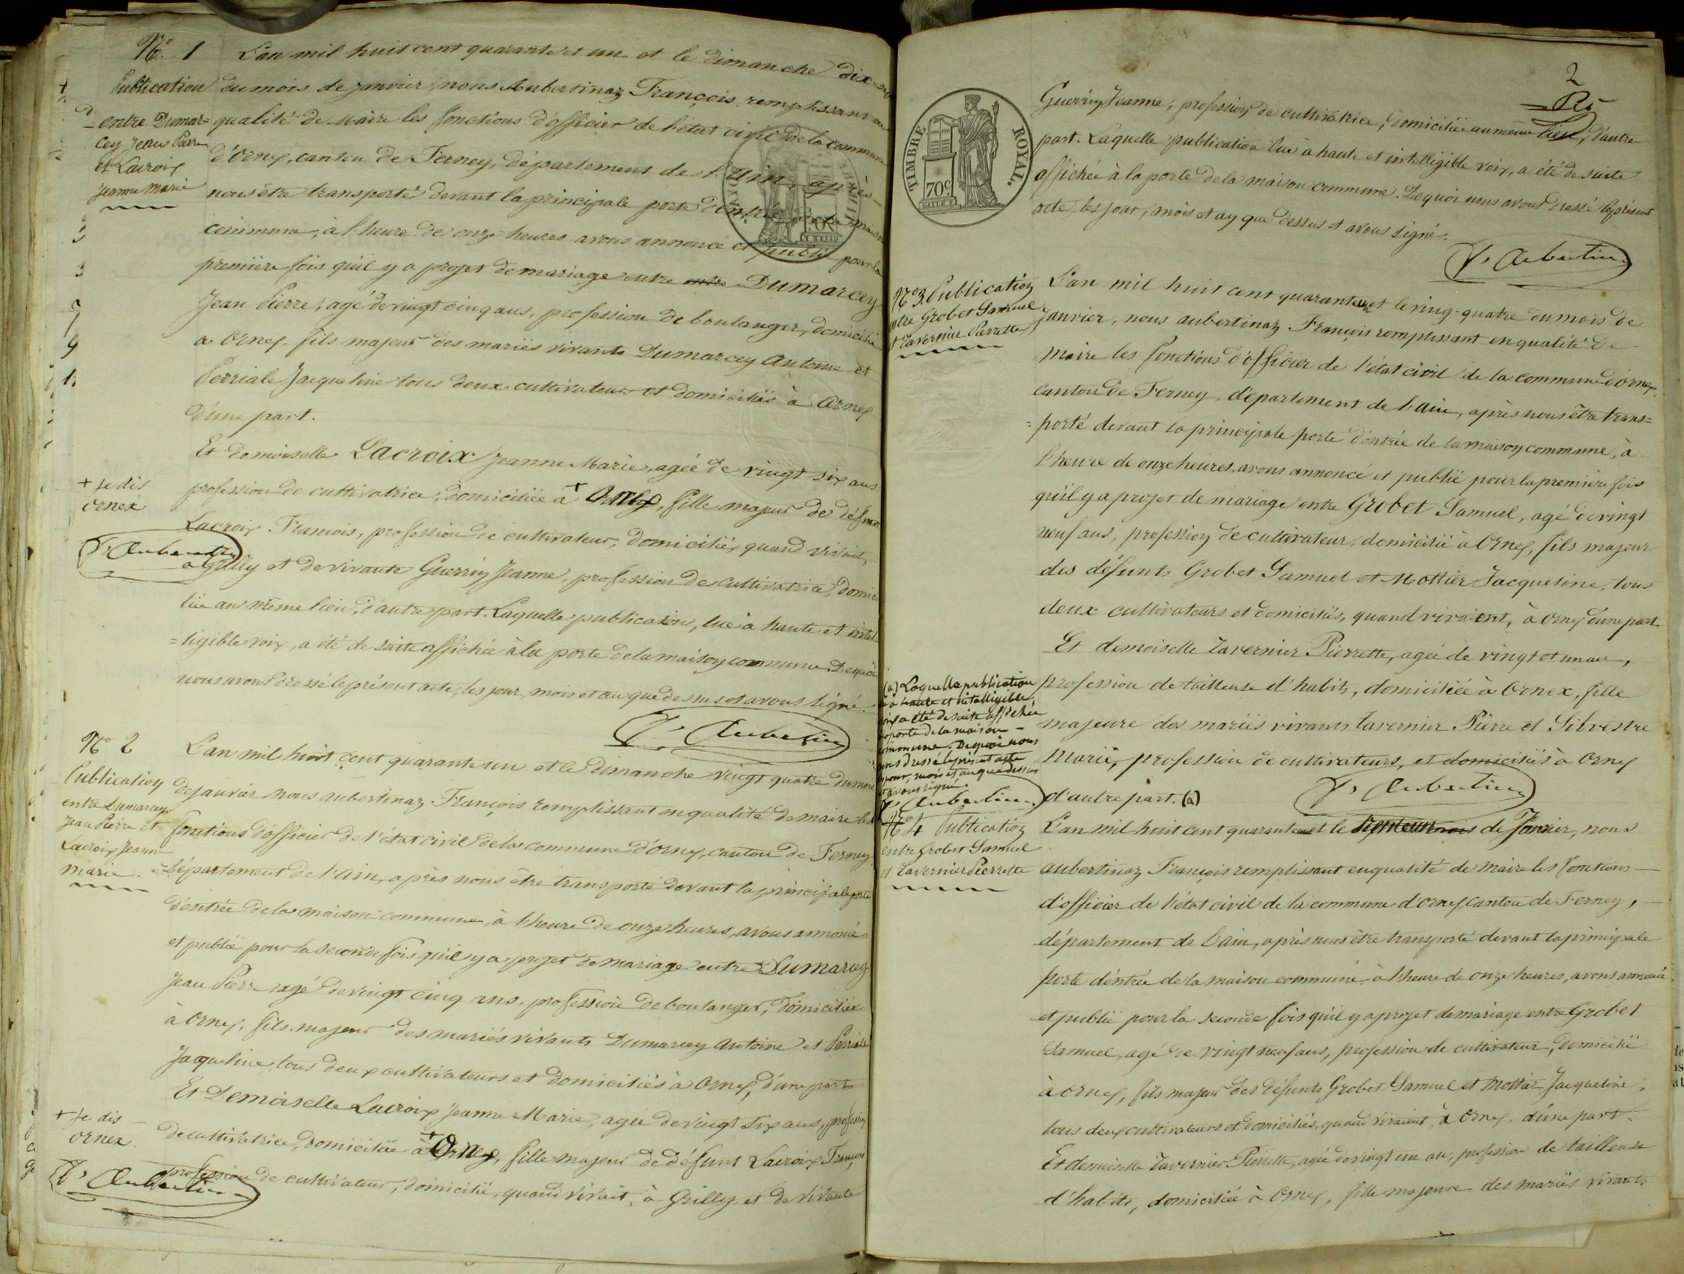 N.° 1
Publication
entre Dumar=
cey Jean Pierre
et Lacroix
Jeanne Marie
L'an mil huit cent quarante et un et le dimanche dix-sept
du mois de janvier, nous Aubertinaz François, remplissant en
qualité de Maire les fonctions d'officier de l'état civil de la commune
d'Ornex, canton de Ferney, département de l'Ain, après
nous être transporté devant la principale porte d'entrée de la maison
commune, à l'heure de onze heures avons annoncé et publié pour la
première fois qu'il y a projet de mariage entre Dumarcey
Jean Pierre, agé de vingt cinq ans, profession de boulanger, domicilié
à Ornex, fils majeur des mariés vivants Dumarcey Antoine et
Perriale Jacqueline tous deux cultivateurs et domiciliés à Ornex
d'une part.
Et demoiselle Lacroix Jeanne Marie, agée de vingt six ans
profession de cultivatrice, domiciliée à + Ornex, fille majeur de défunt
Lacroix François, profession de cultivateur, domicilié, quand vivait,
à Grilly et de vivante Guerrin Jeanne, profession de cultivatrice, domici
liée au même lieu, d'autre part. Laquelle publication, lue à haute et intel
=ligible voix, a été de suite affichée à la porte de la maison commune. De quoi
nous avons dressé le présent acte, les jour, mois et an que dessus et avons signé.
+ Je dis
Ornex
F.s Aubertin
F.s Aubertin
N.° 2
Publication
entre Dumarcey
Jean Pierre et
Lacroix Jeanne
Marie.
L'an mil huit cent quarante un et le Dimanche vingt quatre du mois
de Janvier nous Aubertinaz François remplissant en qualité de maire les
fonctions d'officier de l'état civil de la commune d'Ornex, canton de Ferney
département de l'Ain, après nous être transporté devant la principale porte
d'entrée de la maison commune, à l'heure de onze heures, avons annoncé
et publié pour la seconde fois qu'il y a projet de mariage entre Dumarcey
Jean Pierre agé de vingt cinq ans, profession de boulanger, domicilié
à Ornex, fils majeur des mariés vivants Dumarcey Antoine et Perriale
Jacqueline, tous deux cultivateurs et domiciliés à Ornex, d'une part
Et Demoiselle Lacroix Jeanne Marie, agée de vingt six ans, profession
de cultivatrice, domiciliée à + Ornex, fille majeur de défunt Lacroix François
profession de cultivateur, domicilié, quand vivait, à Grilly et de vivante
+ Je dis
Ornex
F.s Aubertin
2
TIMBRE ROYAL.
70c
Guerrin Jeanne, profession de cultivatrice, domiciliée au même lieu, d'autre
part. Laquelle publication lue à haute et intelligible voix, a été de suite
affichée à la porte de la maison commune. De quoi nous avons dressé le présent
acte, les jour, mois et an que dessus et avons signé.
F.s Aubertin
N.° 3. Publication
entre Grobet Samuel
et Tavernier Pierrette
L'an mil huit cent quarante un et le vingt-quatre du mois de
janvier, nous aubertinaz François remplissant en qualité de
maire les fonctions d'officier de l'état civil de la commune d'Ornex
canton de Ferney, département de l'ain, après nous être trans=
=porté devant la principale porte d'entrée de la maison commune, à
l'heure de onze heures avons annoncé et publié pour la première fois
qu'il y a projet de mariage entre Grobet Samuel, agé de vingt
neuf ans, profession de cultivateur, domicilié à Ornex, fils majeur
des défunts Grobet Samuel et Mottier Jacqueline, tous
deux cultivateurs et domiciliés, quand vivaient, à Ornex d'une part
Et demoiselle Tavernier Pierrette, agée de vingt et un an,
profession de tailleuse d'habits, domiciliée à Ornex, fille
majeure des mariés vivants Tavernier Pierre et Silvestre
Marie, profession de cultivateurs, et domiciliés à Ornex
d'autre part. (a)
F.s Aubertin
(a) Laquelle publication
lue à haute et intelligible
voix a été de suite affichée
à la porte de la maison
commune. De quoi nous
avons dressé le présent acte
les jour, mois et an que dessus
et avons signé.
F.s Aubertin
N.° 4 Publication
entre Grobet Samuel
et Tavernier Pierrette
L'an mil huit cent quarante un et le trente un de Janvier, nous
aubertinaz François remplissant en qualité de maire les fonctions
d'officier de l'état civil de la commune d'Ornex canton de Ferney,
département de l'ain, après nous être transporté devant la principale
porte d'entrée de la maison commune, à l'heure de onze heures, avons annoncé
et publié pour la seconde fois qu'il y a projet de mariage entre Grobet
Samuel, agé de vingt neuf ans, profession de cultivateur, domicilié
à Ornex, fils majeur des défunts Grobet Samuel et Mottier Jacqueline,
tous deux cultivateurs et domiciliés, quand vivaient, à Ornex. d'une part.
Et demoiselle Tavernier Pierrette, agée de vingt un an, profession de tailleuse
d'habits, domiciliée à Ornex, fille majeure des mariés vivants